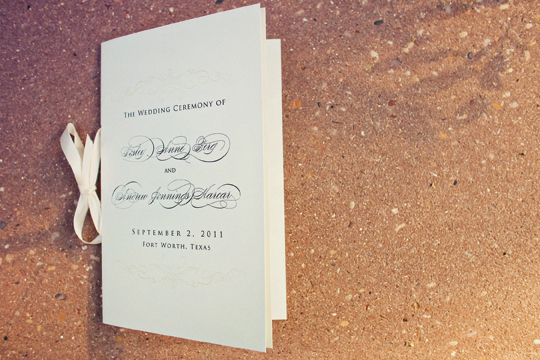 The Wedding Ceremony of
Anne Berg
and
Andrew Jennings
September 2, 2011
Fort Worth, Texas